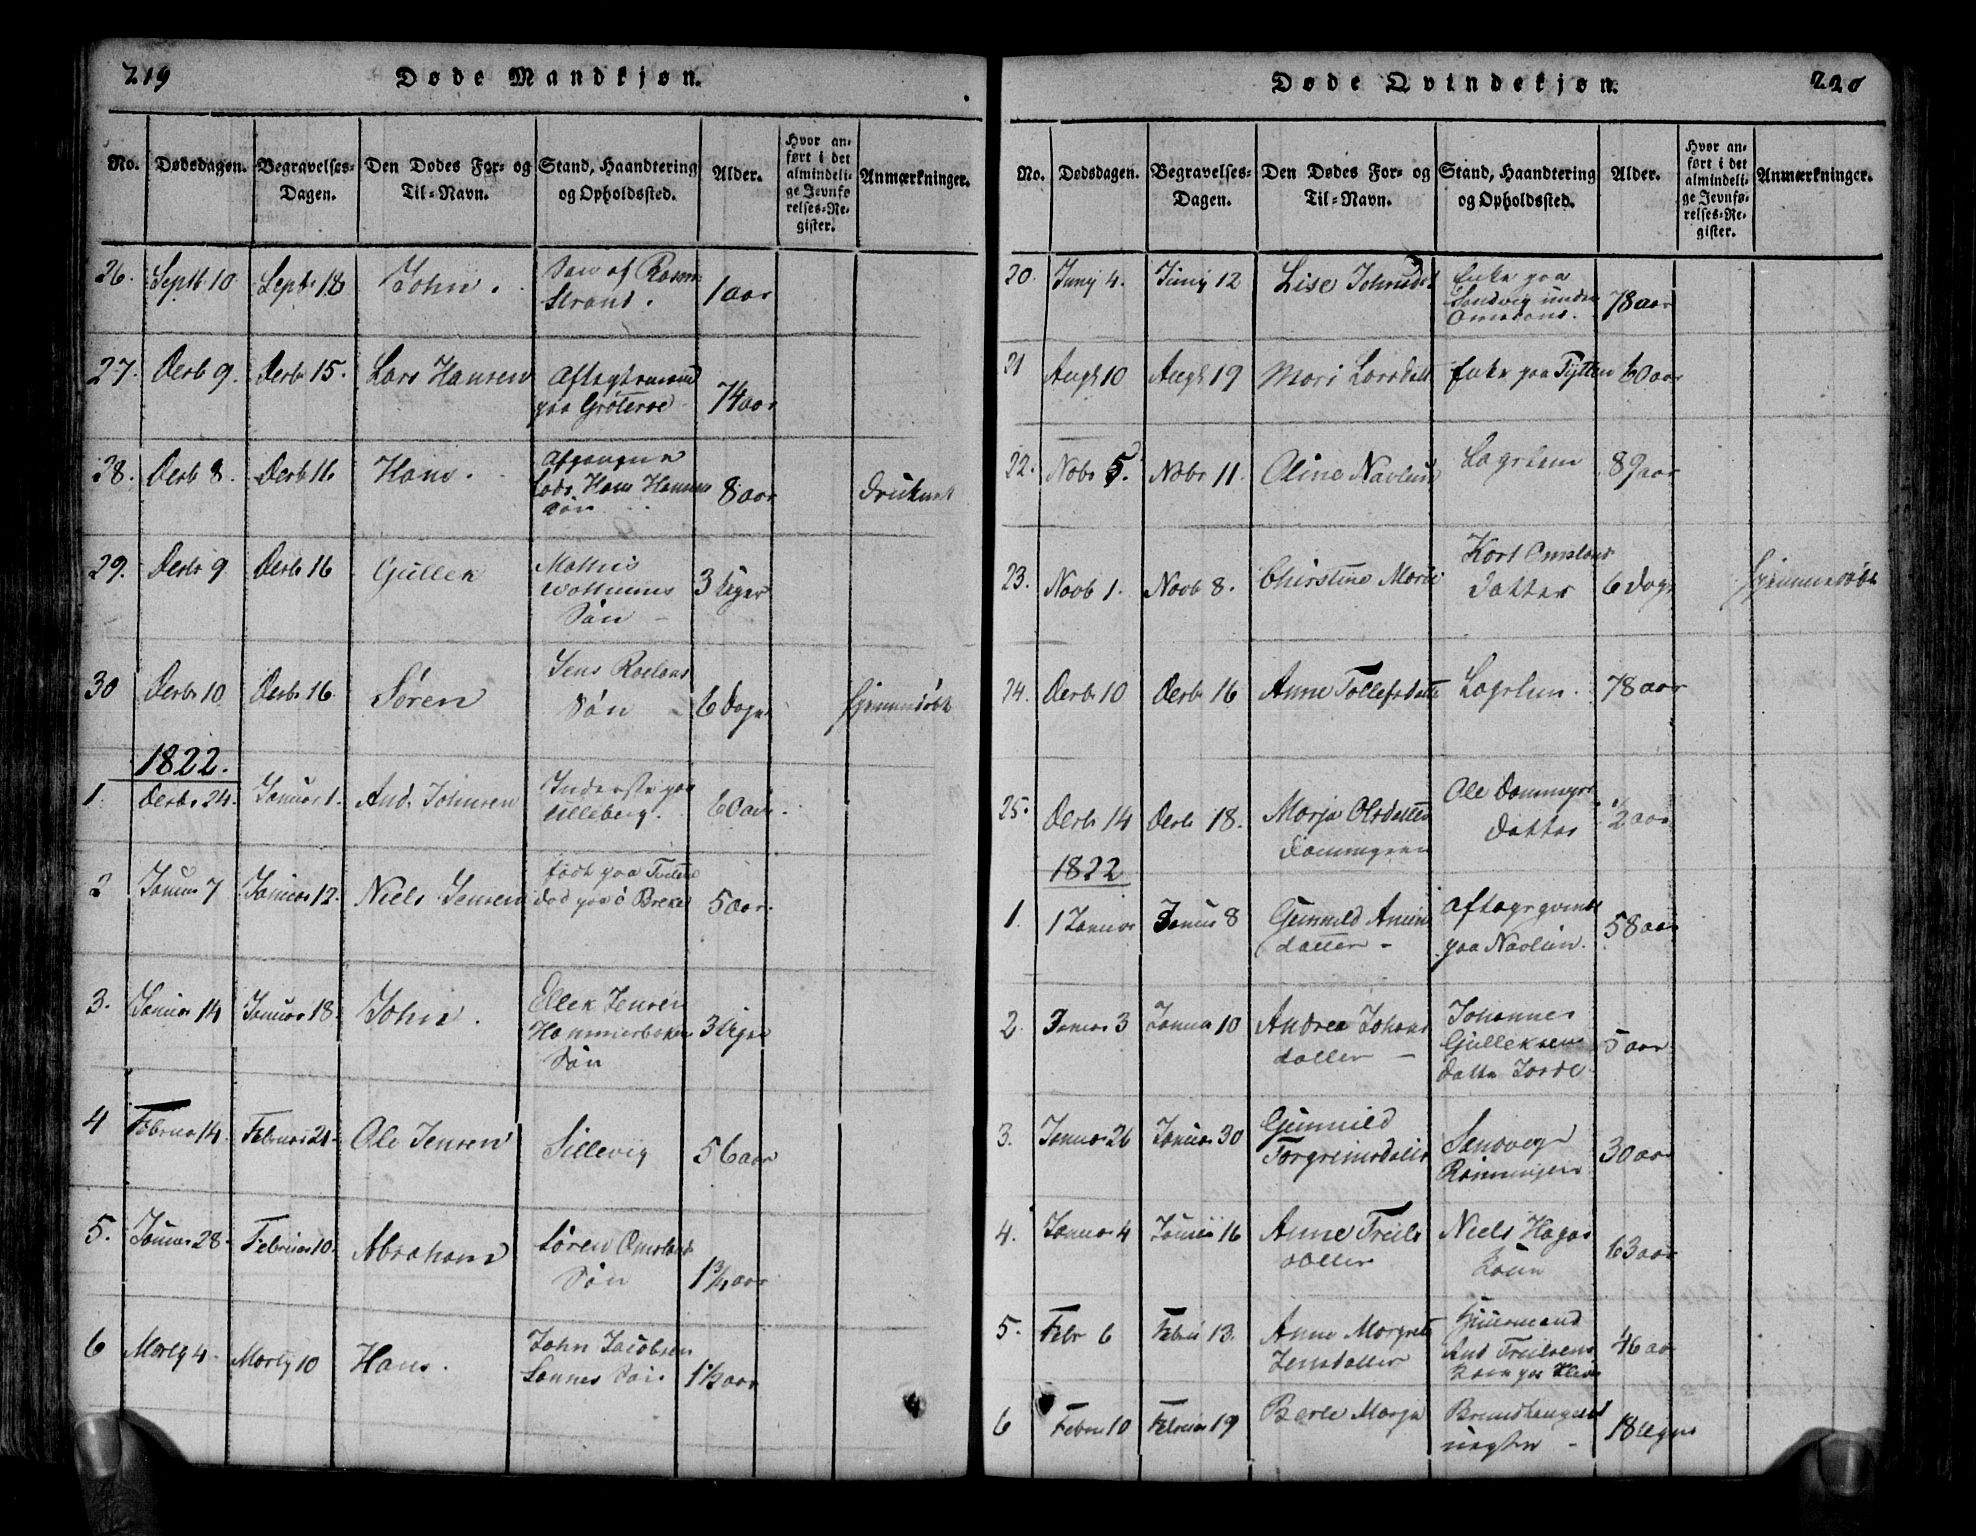 219
Døde Mandkjøn.
No. Dødsdagen. Begravelses-Dagen. Den Dødes For- og Til-Navn. Stand, Haandtering og Opholdssted. Alder. Hvor anført i det almindelige Jevnførelses-Register. Anmærkninger.
26. Septb 10 Septb 18 John. Søn af Rasm
Strand. 1 aar
27. Derb 9. Derb 15. Lars Hansen Aftagtsmand
paa Grøterøe 74 aar
28. Derb 8. Derb 16 Hans. Afgangne
Lods Hans Hansens
Søn 8 aar druknet
29. Derb 9. Derb 16 Gullek Mathis
Søn 3 Uger
30 Derb 10 Derb 16. Søren Jens Roelans
Søn 6 Dage hjemmedøbt
1822.
1. Derb 24. Januar 1. And. Johnsen Inderste paa
Ulleberg. 60 aar.
2 Januar 7 Januar 12. Niels Jensen født paa
død paa Ø Brekke 5 aar.
3. Januar 14 Januar 18. John. Ellek Jensen
Hammerbaken
Søn 3 Uger
4 Februar 14. Februar 21. Ole Jensen Sillevig 56 aar
5. Januar 28. Februar 10. Abraham Søren Omeland
Søn 1 3/4 aar
6 Marty 4. Marty 10 Hans. John Jacobsen
Sannes Søn 1 1/2 aar
Døde Qvindekjøn.
220
No. Dødsdagen. Begravelses-Dagen. Den Dødes For- og Til-Navn. Stand, Haandtering og Opholdssted. Alder. Hvor anført i det almindelige Jevnførelses-Register. Anmærkninger.
20. Juny 4. Juny 12 Lise Johnsdt Enke paa
Sandvig under
78 aar
21 Augt 10 Augt 19 Mari Larsdatt Enke paa Tytten 60 aar
22. Nobr 5. Nobr 11. Oline Navlun Lagslem 89 aar
23. Novb 1. Novb 8. Christine Marie Kort Omeland
Datter 6 Dage hjemmedøbt
24. Derb 10 Derb 16 Anne Tollefsdatte Lagslem. 78 aar
25. Derb 14 Derb 18. Marja Olsdatter
Dammyren Ole Dammyr
Datter 1/2 aar
1822
1. 1 Januar Januar 8 Gunnild
datter - Aftagsqvinde
paa Navlun. 58 aar
2. Januar 3 Januar 10 Andrea Johans
datter - Johannes
Gulleksens
Datter Jorde 5 aar
3. Januar 26 Januar 30 Gunnild
Torgrimsdatter Sandvig
Rønningen 30 aar
4. Januar 4 Januar 16 Anne Truls
datter Niels Hagas
Kone 63 aar
5. Febr 6 Febru 13. Anne Margrete
Jensdatter Huusmand
And Trulsens
Kone paa 46 aar
6 Februar 10 Februar 19 Berte Marja
18 Uger